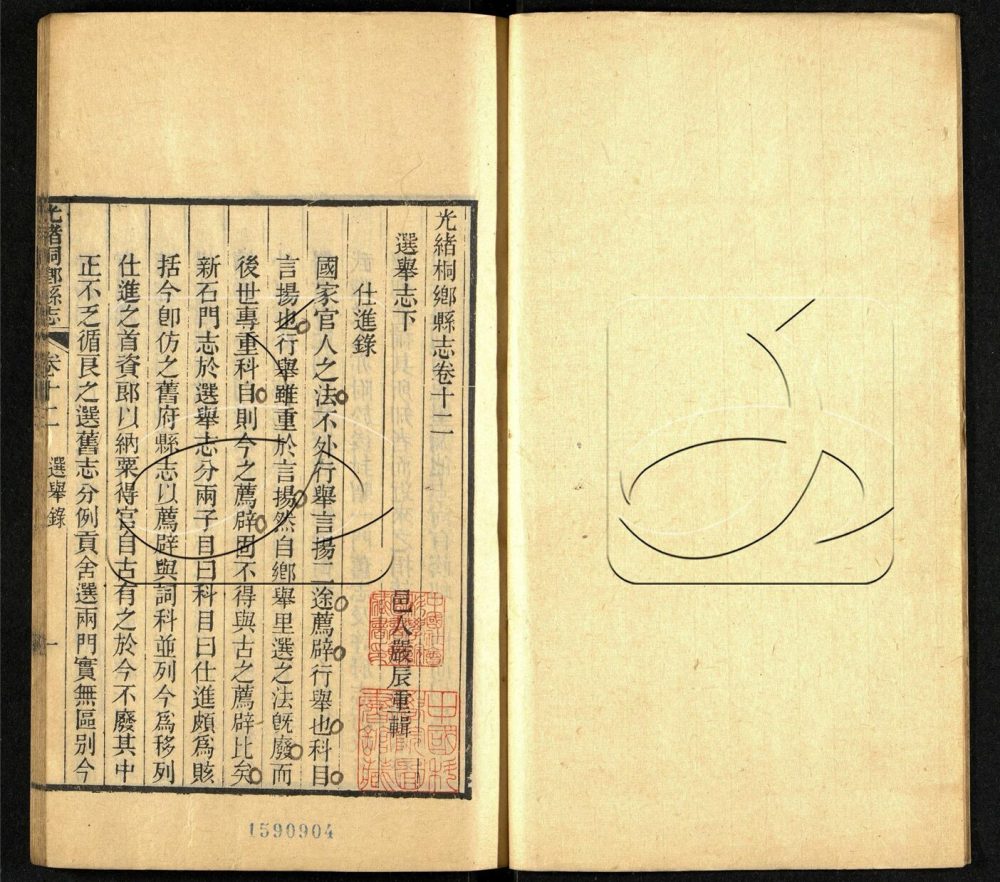 光緒桐鄉縣志卷十二
選舉志下
邑人嚴辰重輯
仕進錄
國家官人之法不外行舉言揚二途薦辟行舉也科目
言揚也行舉雖重於言揚然自鄉舉里選之法旣廢而
後世專重科目則今之薦辟固不得與古之薦辟比矣
新石門志於選舉志分兩子目曰科目曰仕進頗爲賅
括今卽仿之舊府縣志以薦辟與詞科並列今爲移列
仕進之首資郎以納粟得官自古有之於今不廢其中
正不乏循良之選舊志分例貢舍選兩門實無區別今
光緒桐鄉縣志
卷十二
選舉錄
一
1590904